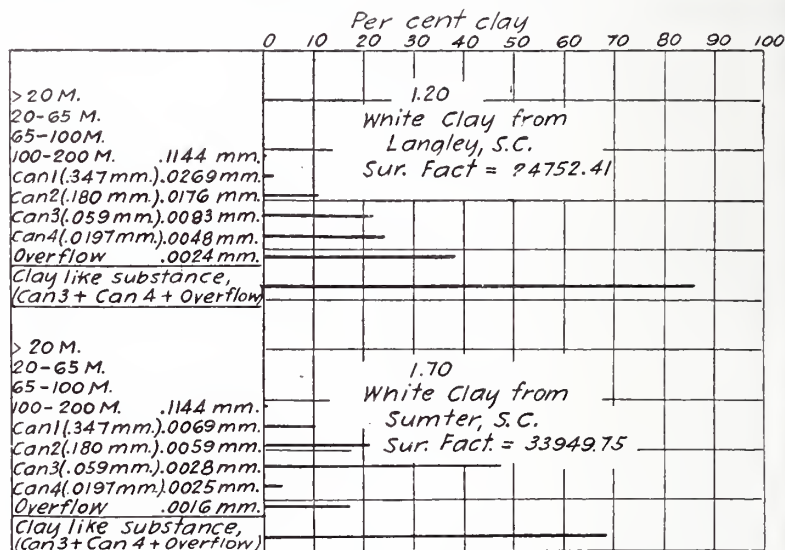 Per cent clay
0 10 20 30 40 50 60 70 80 90 100
>20 M.
20-65 M.
65-100 M.
100-200 M. .1144 mm.
Can1(.347mm.).0269mm.
Can2(.180 mm.).0176 mm.
Can3(.059mm.).0083 mm.
Can4(.0197mm.).0048 mm.
Overflow .0024 mm.
Clay like substance,
(Can3 + Can 4 + Overflow)
1.20
White Clay from
Langley, S.C.
Sur. Fact = 24752.41
>20 M.
20-65 M.
65-100 M.
100-200 M. .1144 mm.
Can1(.347mm.).0069mm.
Can2(.180 mm.).0059mm.
Can3(.059mm.).0028 mm.
Can4(.0197mm.).0025 mm.
Overflow .0016 mm.
Clay like substance,
(Can3 + Can 4 + Overflow)
1.70
White Clay from
Sumter, S.C.
Sur. Fact. = 33949.75